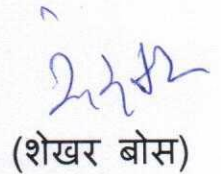 (शेखर बोस)